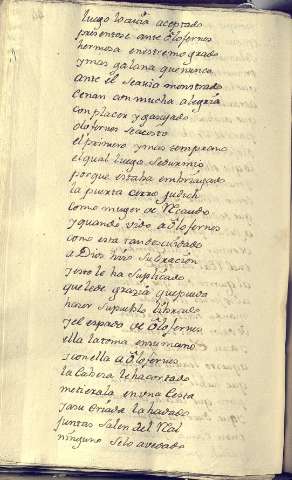 luego lo avia aceptado
presentose ante Olofernes
hermosa en estremo grado
y mas galana que nunca
ante el se avia mostrado
Cenan con mucha alegria
con placer y gasajado
Olofernes se acosto
el primero y mas temprano
el qual luego se durmio
porque estaba embriagado
la puerta cerro Judich
como muger de Recaudo
y quando vido a Olofernes
como esta tan descuidado
a Dios hizo su oracion
y esto le ha suplicado
que le de grazia que pueda
hazer su pueblo librado
y el espada de Olofernes
ella la toma en su mano
y con ella a Olofernes
la Cabeza le ha cortado
metierala en una Cesta
y a su criada la ha dado
juntas salen del Real
ninguno se lo a vedado